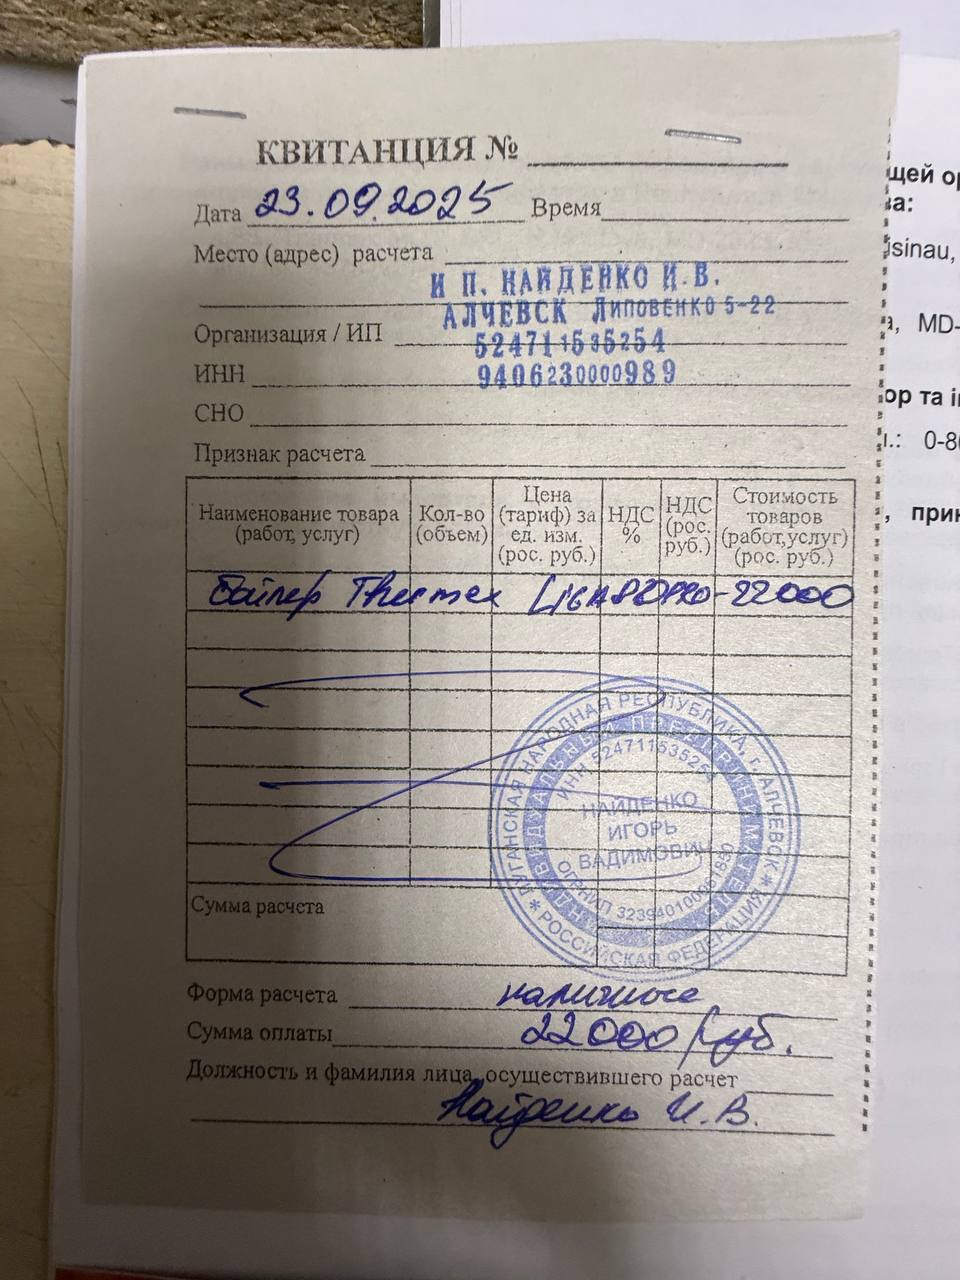 КВИТАНЦИЯ №
Дата 23.09.2025 Время
Место (адрес) расчета
И П. НАЙДЕНКО И.В.
АЛЧЕВСК ЛИПОВЕНКО 5-22
Организация / ИП
524711535254
ИНН
9406230000989
СНО
Признак расчета
Наименование товара (работ, услуг)
Кол-во (объем)
Цена (тариф) за ед. изм. (рос. руб.)
НДС %
НДС (рос. руб.)
Стоимость товаров (работ,услуг) (рос. руб.)
Бойлер Thermex 22000
ЛУГАНСКАЯ НАРОДНАЯ РЕСПУБЛИКА, г. АЛЧЕВСК
РОССИЙСКАЯ ФЕДЕРАЦИЯ
ИНДИВИДУАЛЬНЫЙ ПРЕДПРИНИМАТЕЛЬ
ИНН 524711535254
НАЙДЕНКО
ИГОРЬ
ВАДИМОВИЧ
ОГРНИП
Сумма расчета
Форма расчета наличные
Сумма оплаты 22000 руб.
Должность и фамилия лица, осуществившего расчет
Найденко И.В.
щей
MD-
ор та
0-8